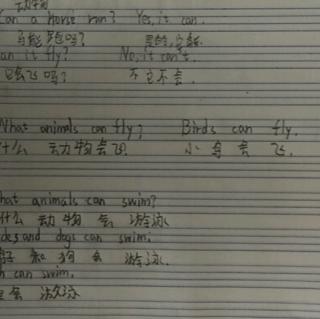 动物
an a horse run? Yes, it can.
马能跑吗? 是的,它能.
an it fly? No, it can't.
它会飞吗? 不它不会.
What animals can fly? Birds can fly.
什么 动物会飞. 小鸟会飞.
hat animals can swim?
什么 动物 会 游泳
and dogs can swim.
和 狗 会 游泳.
can swim.
会 游泳